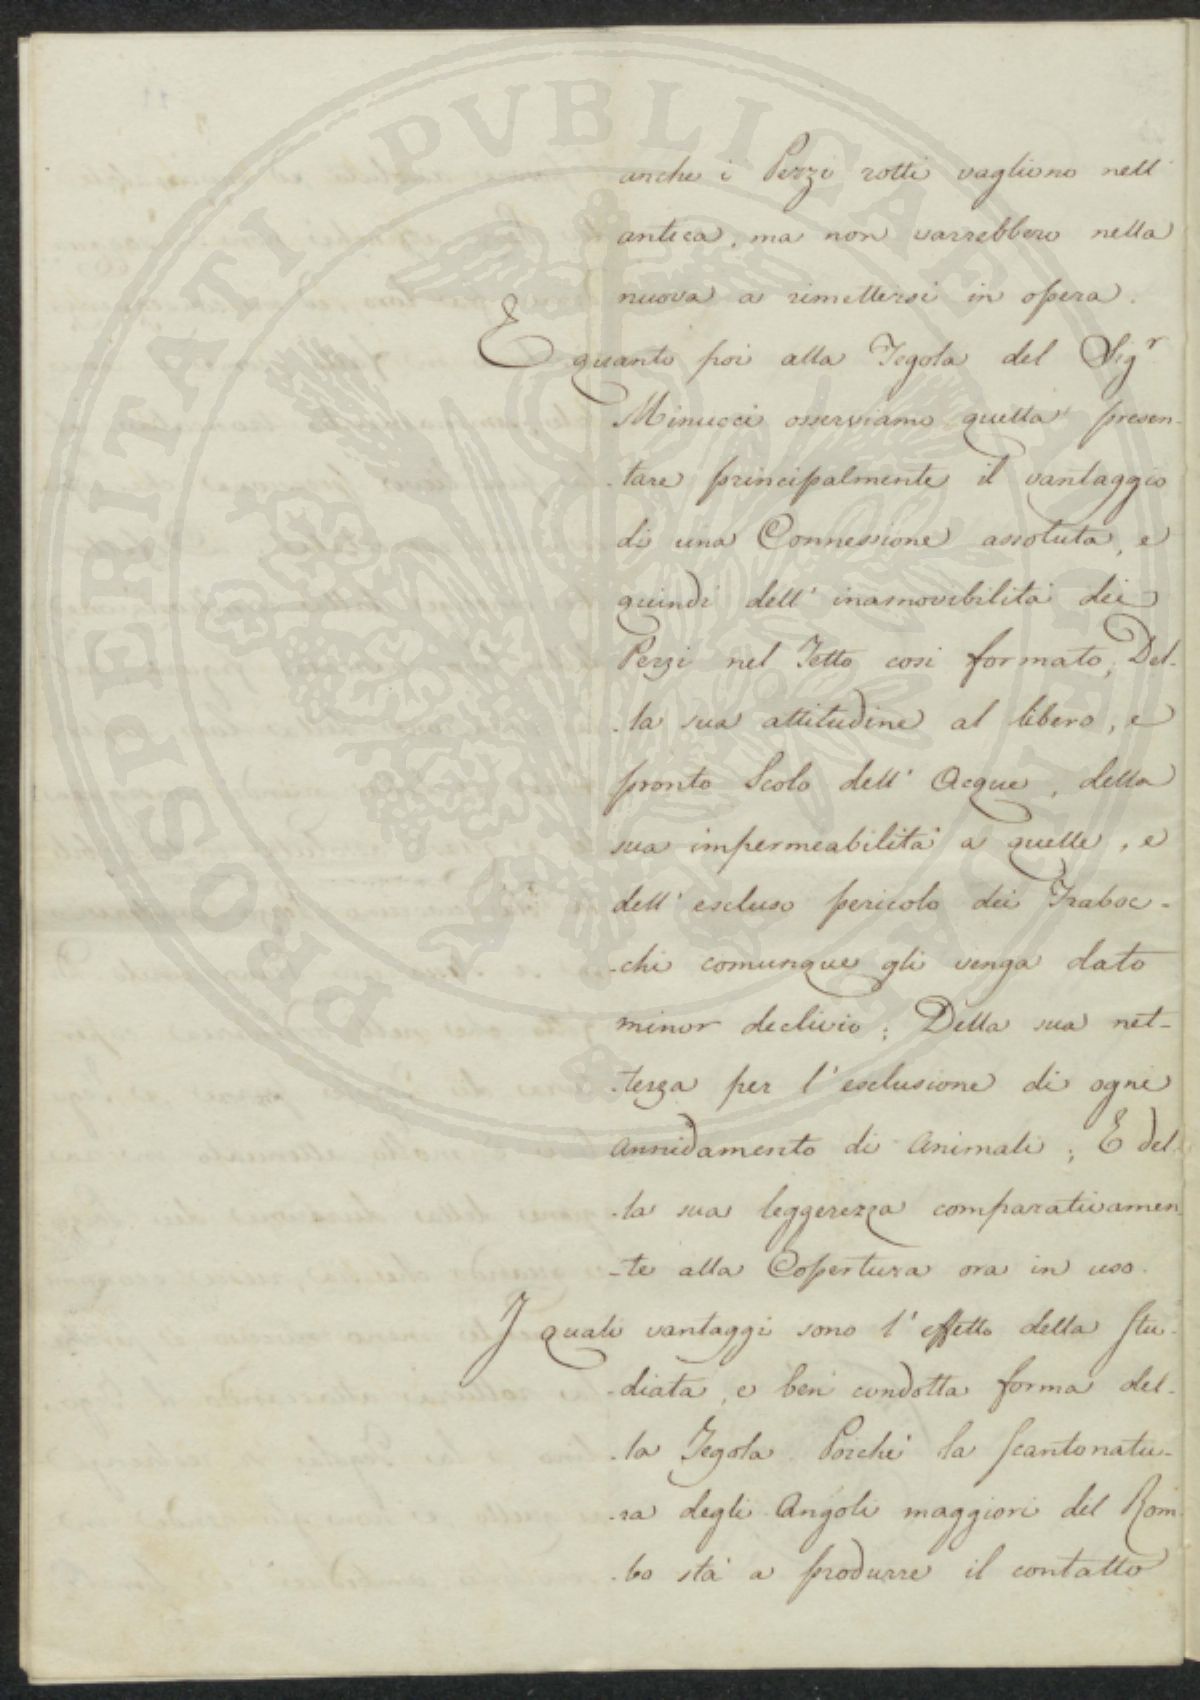 PROSPERITATI PVBLICAE AVGENDAE
anche i Pezzi rotti vagliono nell'
antica, ma non varrebbero nella
nuova a rimettersi in opera.
E quanto poi alla Tegola del Sig.r
Minucci osserviamo quella presen-
-tare principalmente il vantaggio
di una Connessione assoluta, e
quindi dell' inamovibilità dei
Pezzi nel Tetto così formato; Del-
-la sua attitudine al libero, e
pronto Scolo dell' Acque, della
sua impermeabilità a quelle, e
dell' escluso pericolo dei Traboc-
-chi comunque gli venga dato
minor declivio; Della sua net-
-tezza per l' esclusione di ogni
annidamento di Animali; E del-
-la sua leggerezza comparativamen-
-te alla Copertura ora in uso.
I quali vantaggi sono l' effetto della Stu-
-diata, e ben condotta forma del-
-la Tegola. Poichè la Scantonatu-
-ra degli Angoli maggiori del Rom-
-bo stà a produrre il contatto